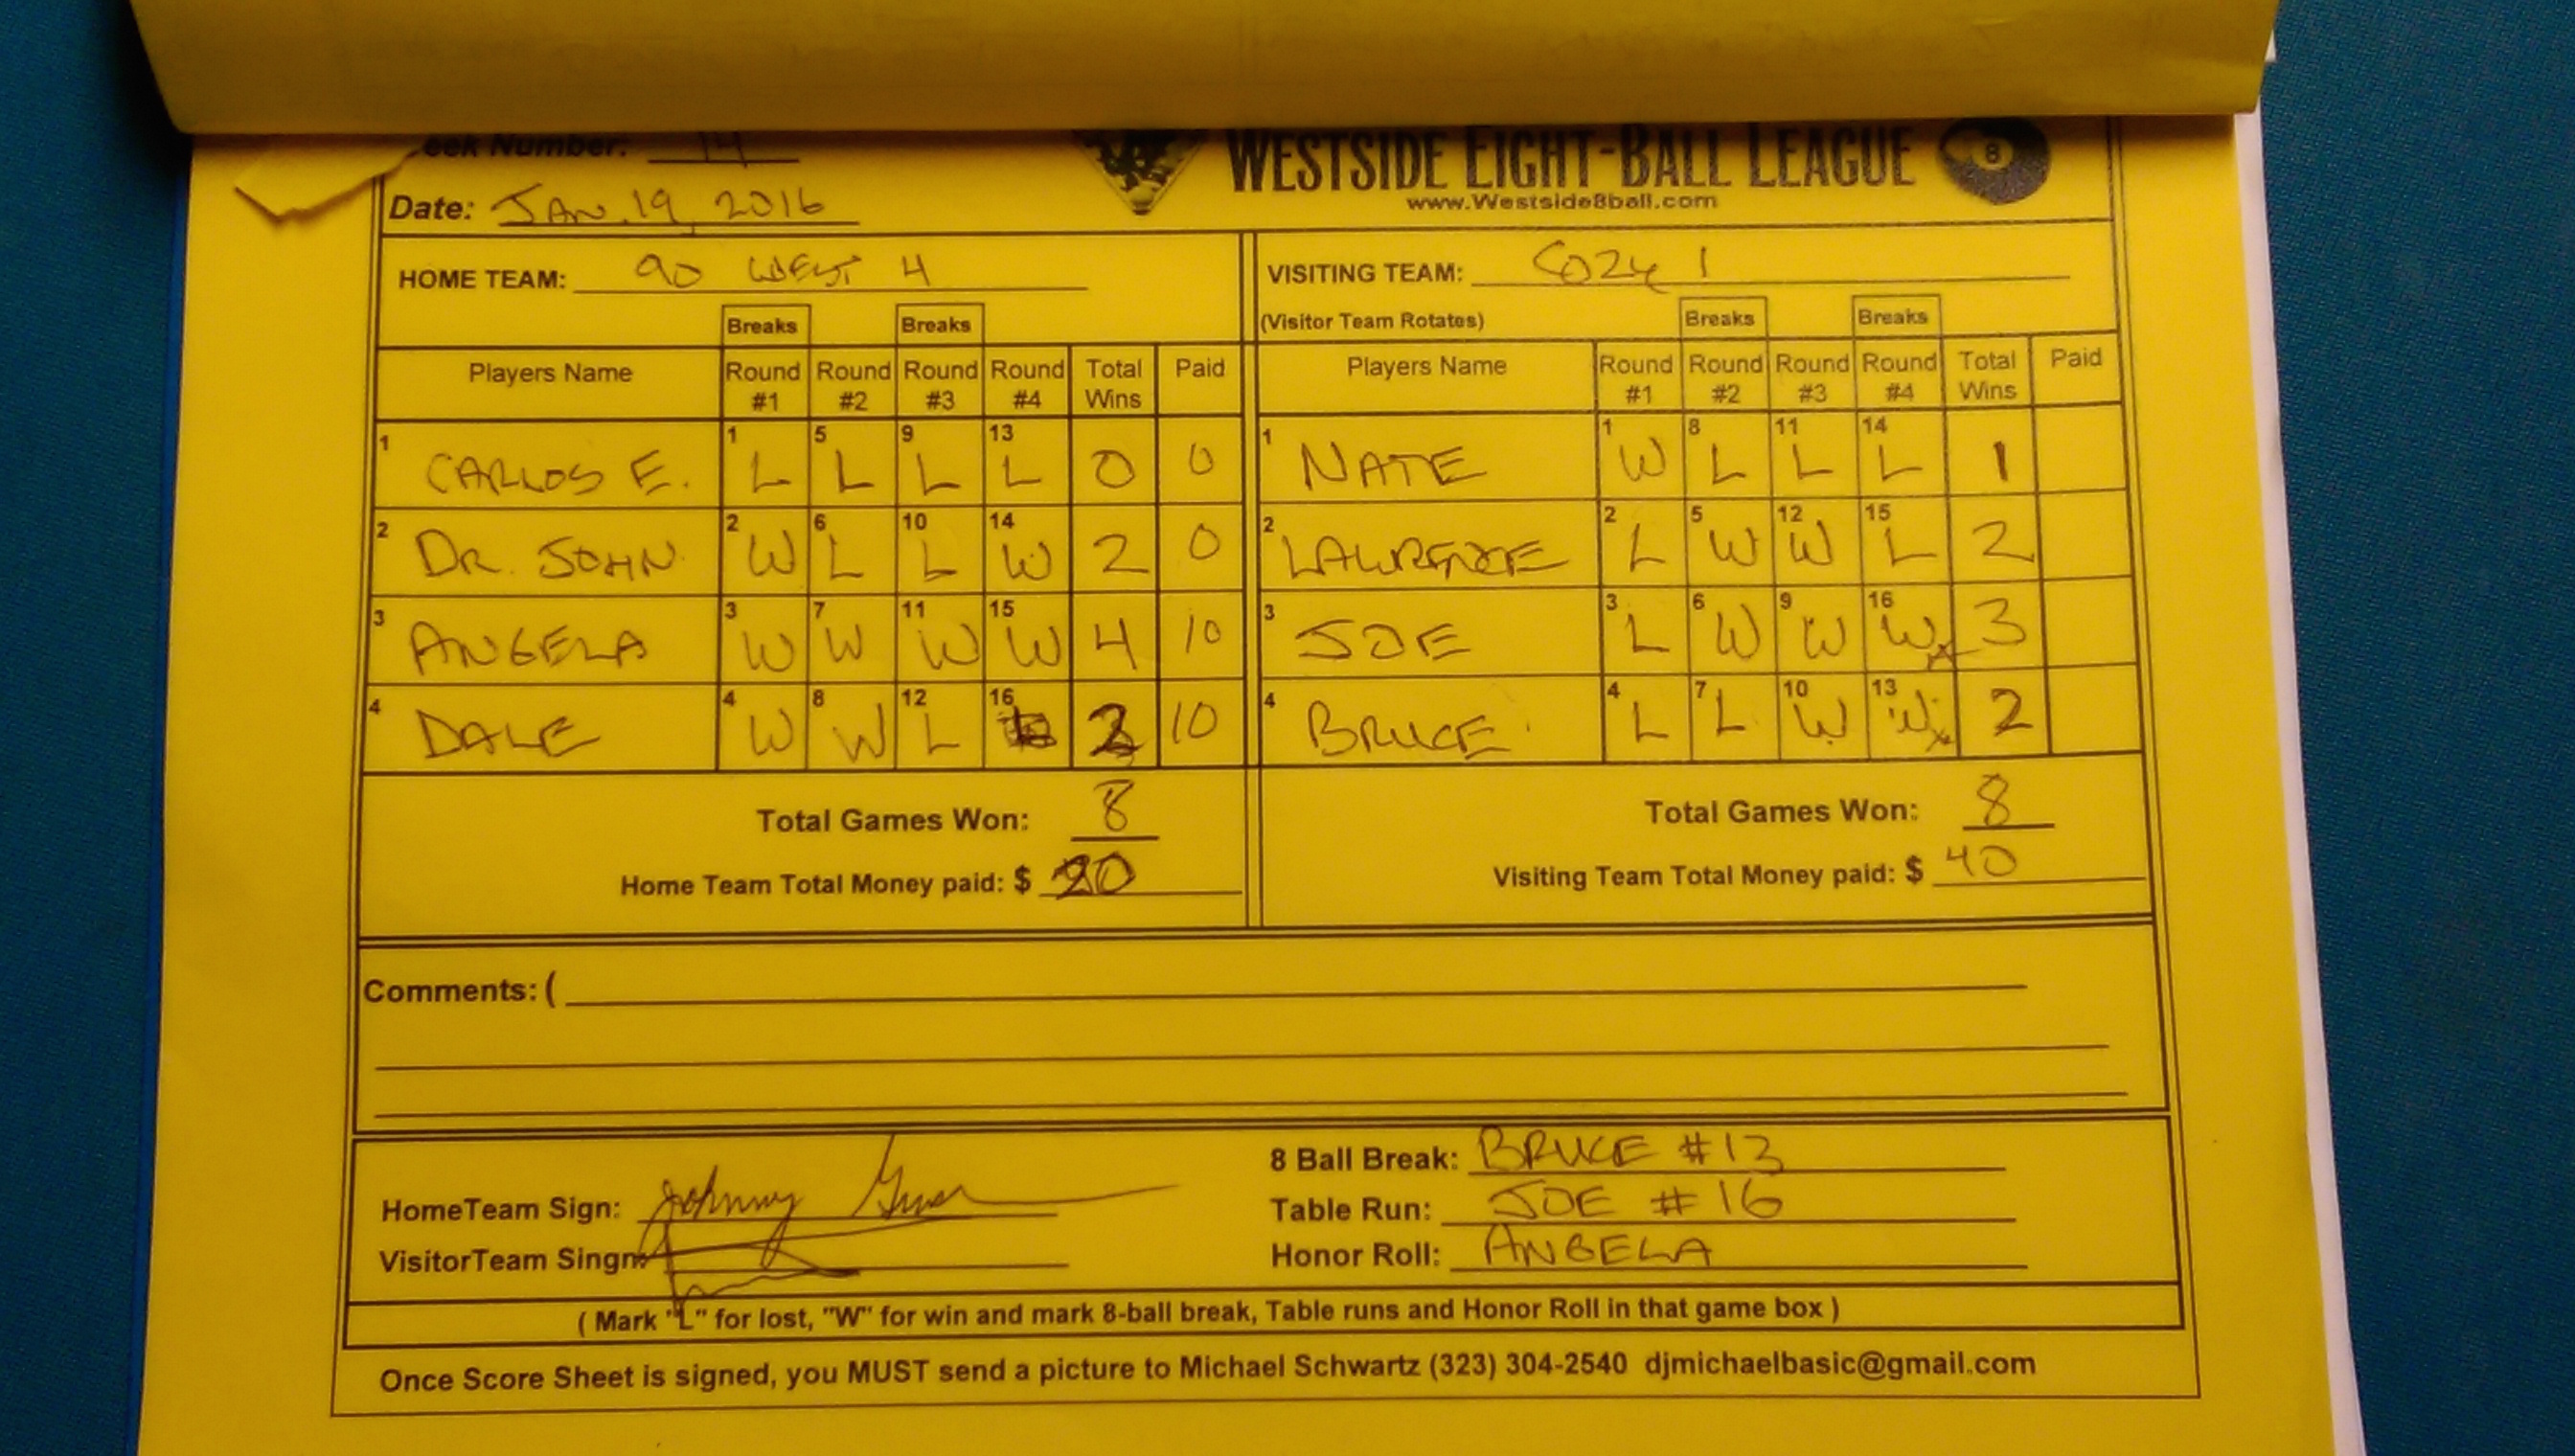 eek Number: 14
WESTSIDE EIGHT-BALL LEAGUE 8
Date: JAN. 19, 2016 www.Westside8ball.com
HOME TEAM: 90 WEST 4 VISITING TEAM: COZY 1
Breaks Breaks (Visitor Team Rotates) Breaks Breaks
Players Name Round #1 Round #2 Round #3 Round #4 Total Wins Paid Players Name Round #1 Round #2 Round #3 Round #4 Total Wins Paid
1 CARLOS E. 1 L 5 L 9 L 13 L 0 0 1 NATE 1 W 8 L 11 L 14 L 1
2 DR. JOHN 2 W 6 L 10 L 14 W 2 0 2 LAWRENCE 2 L 5 W 12 W 15 L 2
3 ANGELA 3 W 7 W 11 W 15 W 4 10 3 JOE 3 L 6 W 9 W 16 W 3
4 DALE 4 W 8 W 12 L 16 2 10 4 BRUCE 4 L 7 L 10 W 13 W 2
Total Games Won: 8 Total Games Won: 8
Home Team Total Money paid: $ 20 Visiting Team Total Money paid: $ 40
Comments: (
8 Ball Break: BRUCE #13
HomeTeam Sign: Johnny Table Run: JOE #16
VisitorTeam Singn: Honor Roll: ANGELA
( Mark "L" for lost, "W" for win and mark 8-ball break, Table runs and Honor Roll in that game box )
Once Score Sheet is signed, you MUST send a picture to Michael Schwartz (323) 304-2540 djmichaelbasic@gmail.com